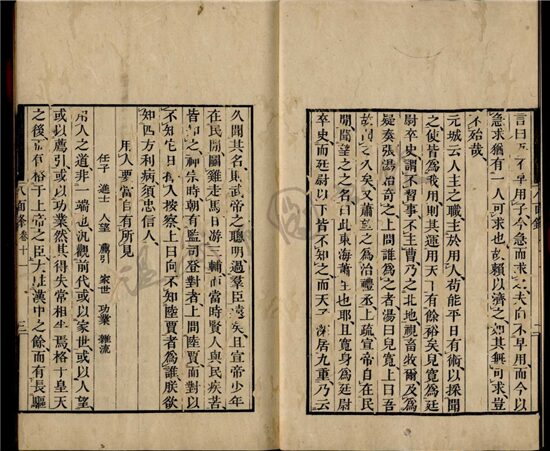 言曰吾不早用子今急而求之夫向不早用而今以
急求猶有一人可求也亦賴以濟之如其無可求豈
不殆哉
元城云人主之職主於用人苟能平日有術以採聞
之使皆爲我用則其運用天下有餘裕矣兒寬爲廷
尉卒史謂不習事不主曹乃之北地視畜牧爾及爲
疑奏張湯洎奇之上問誰爲之者湯曰兒寬上曰吾
故聞之久矣又蕭望之爲治禮丞上疏宣帝自在民
間聞望之之名曰此東海蕭生也耶且寬身爲廷尉
卒史而廷尉以下皆不知之而天子深居九重乃云
久聞其名則武帝之聰明過羣臣遠矣且宣帝少年
在民間鬭雞走馬日游三輔而當時賢人與民疾苦
皆知之神宗時朝有監司登對者上問陸賈面對以
不知它日有入按察上曰向不知陸賈者爲誰朕欲
知四方利病須忠信人
用人要當自有所見
任子 進士 人望 薦引 家世 功業 雜流
用人之道非一端也況觀前代或以家世或以人望
或以薦引或以功業然其得失常相半焉格于皇天
之後而有格于上帝之臣大姓漢中之餘而有長驅
八面鋒卷十一 三